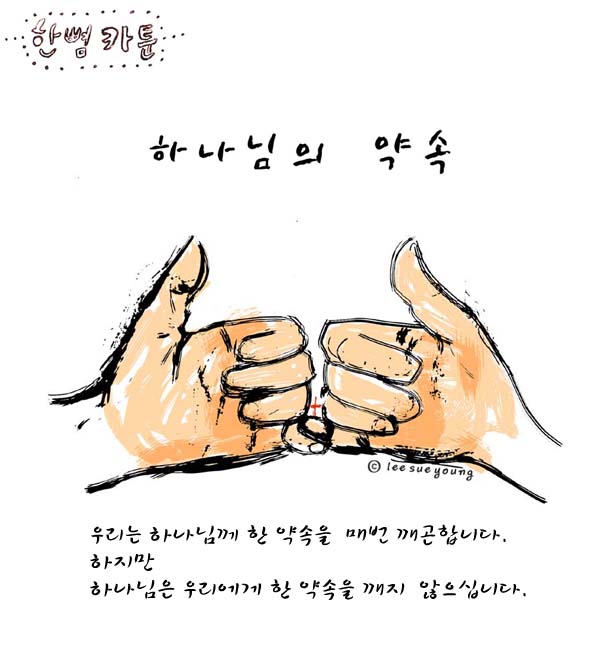 한뼘카툰
하나님의 약속
© lee sue young
우리는 하나님께 한 약속을 매번 깨곤합니다.
하지만
하나님은 우리에게 한 약속을 깨지 않으십니다.